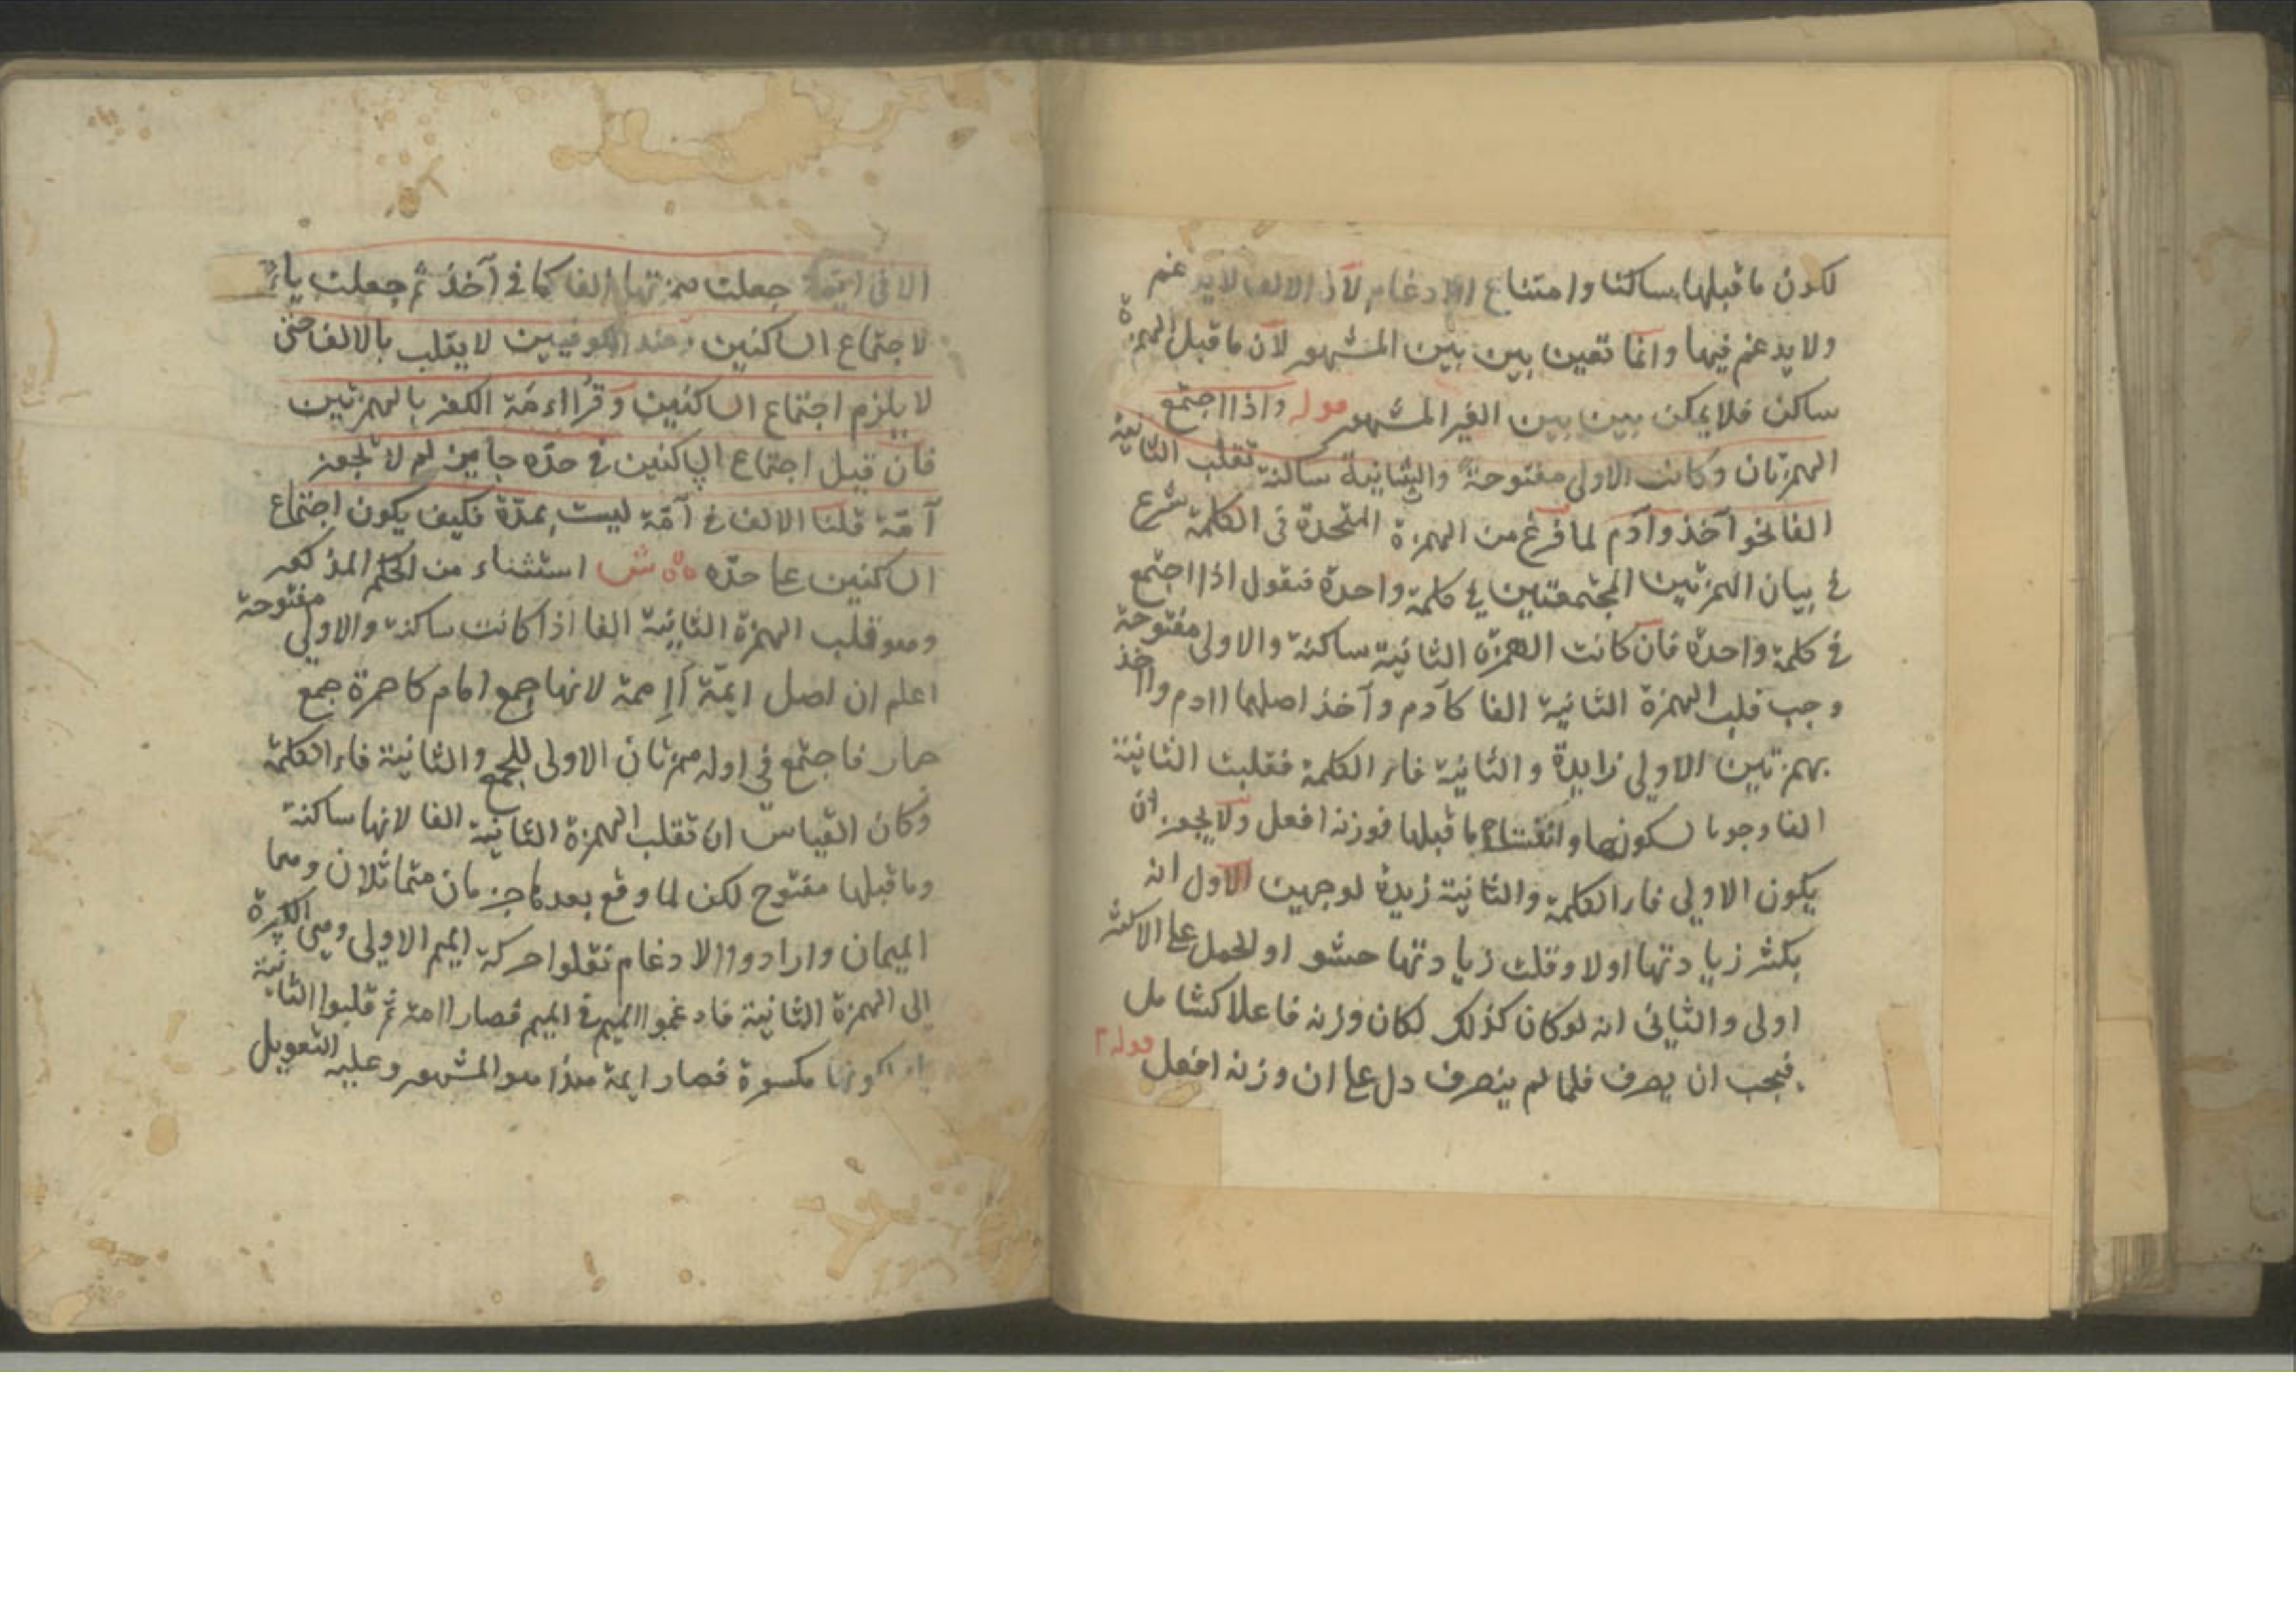 لكون ما قبلها ساكنا وامتناع الادغام لان الالف لا يدغم
ولا يدغم فيها وانما تعين بين بين المشهور لان ما قبل الهمزة
ساكن فلا يمكن بين بين الغير المشهور قوله واذا اجتمع
الهمزتان وكانت الاولى مفتوحة والثانية ساكنة تقلب الثانية
الفا نحو آخذ وآدم لما فرغ من الهمزة المتحدة في الكلمة شرع
في بيان الهمزتين المجتمعتين في كلمة واحدة فنقول اذا اجتمع
في كلمة واحدة فان كانت الهمزة الثانية ساكنة والاولى مفتوحة
وجب قلب الهمزة الثانية الفا كآدم وآخذ اصلهما اادم وااخذ
بهمزتين الاولى زايدة والثانية فاء الكلمة فقلبت الثانية
الفا وجوبا لسكونها وانفتاح ما قبلها فوزنه افعل ولا يجوز ان
يكون الاولى فاء الكلمة والثانية زيدة لوجهين الاول انه
بكثر زيادتها اولا وقلت زيادتها حشو اوالحمل على الاكثر
اولى والثاني انه لو كان كذلك لكان وزنه فاعلا كشامل
فيجب ان يصرف فلما لم ينصرف دل على ان وزنه افعل قوله
الا في ايمة جعلت همزتها الفا كما في آخذ ثم جعلت ياء
لاجتماع الساكنين وعند الكوفيين لا يقلب بالالف حتى
لا يلزم اجتماع الساكنين وقرأ اءمة الكفر بالهمزتين
فان قيل اجتماع الساكنين في حده جايز لم لا تجوز
آمة قلنا الالف في آمة ليست بمدة فكيف يكون اجتماع
الساكنين على حده ش استثناء من الحكم المذكور
وهو قلب الهمزة الثانية الفا اذا كانت ساكنة والاولى مفتوحة
اعلم ان اصل ايمة أإممة لانها جمع امام كاحمرة جمع
حمار فاجتمع في اوله همزتان الاولى للجمع والثانية فاء الكلمة
وكان القياس ان تقلب الهمزة الثانية الفا لانها ساكنة
وما قبلها مفتوح لكن لما وقع بعدها حرفان متماثلان وهما
الميمان وارادوا الادغام نقلوا حركة الميم الاولى وهي الكسرة
الى الهمزة الثانية فادغموا الميم في الميم فصار اامة ثم قلبوا الثانية
ياء لكونها مكسورة فصار ايمة هذا هو المشهور وعليه التعويل